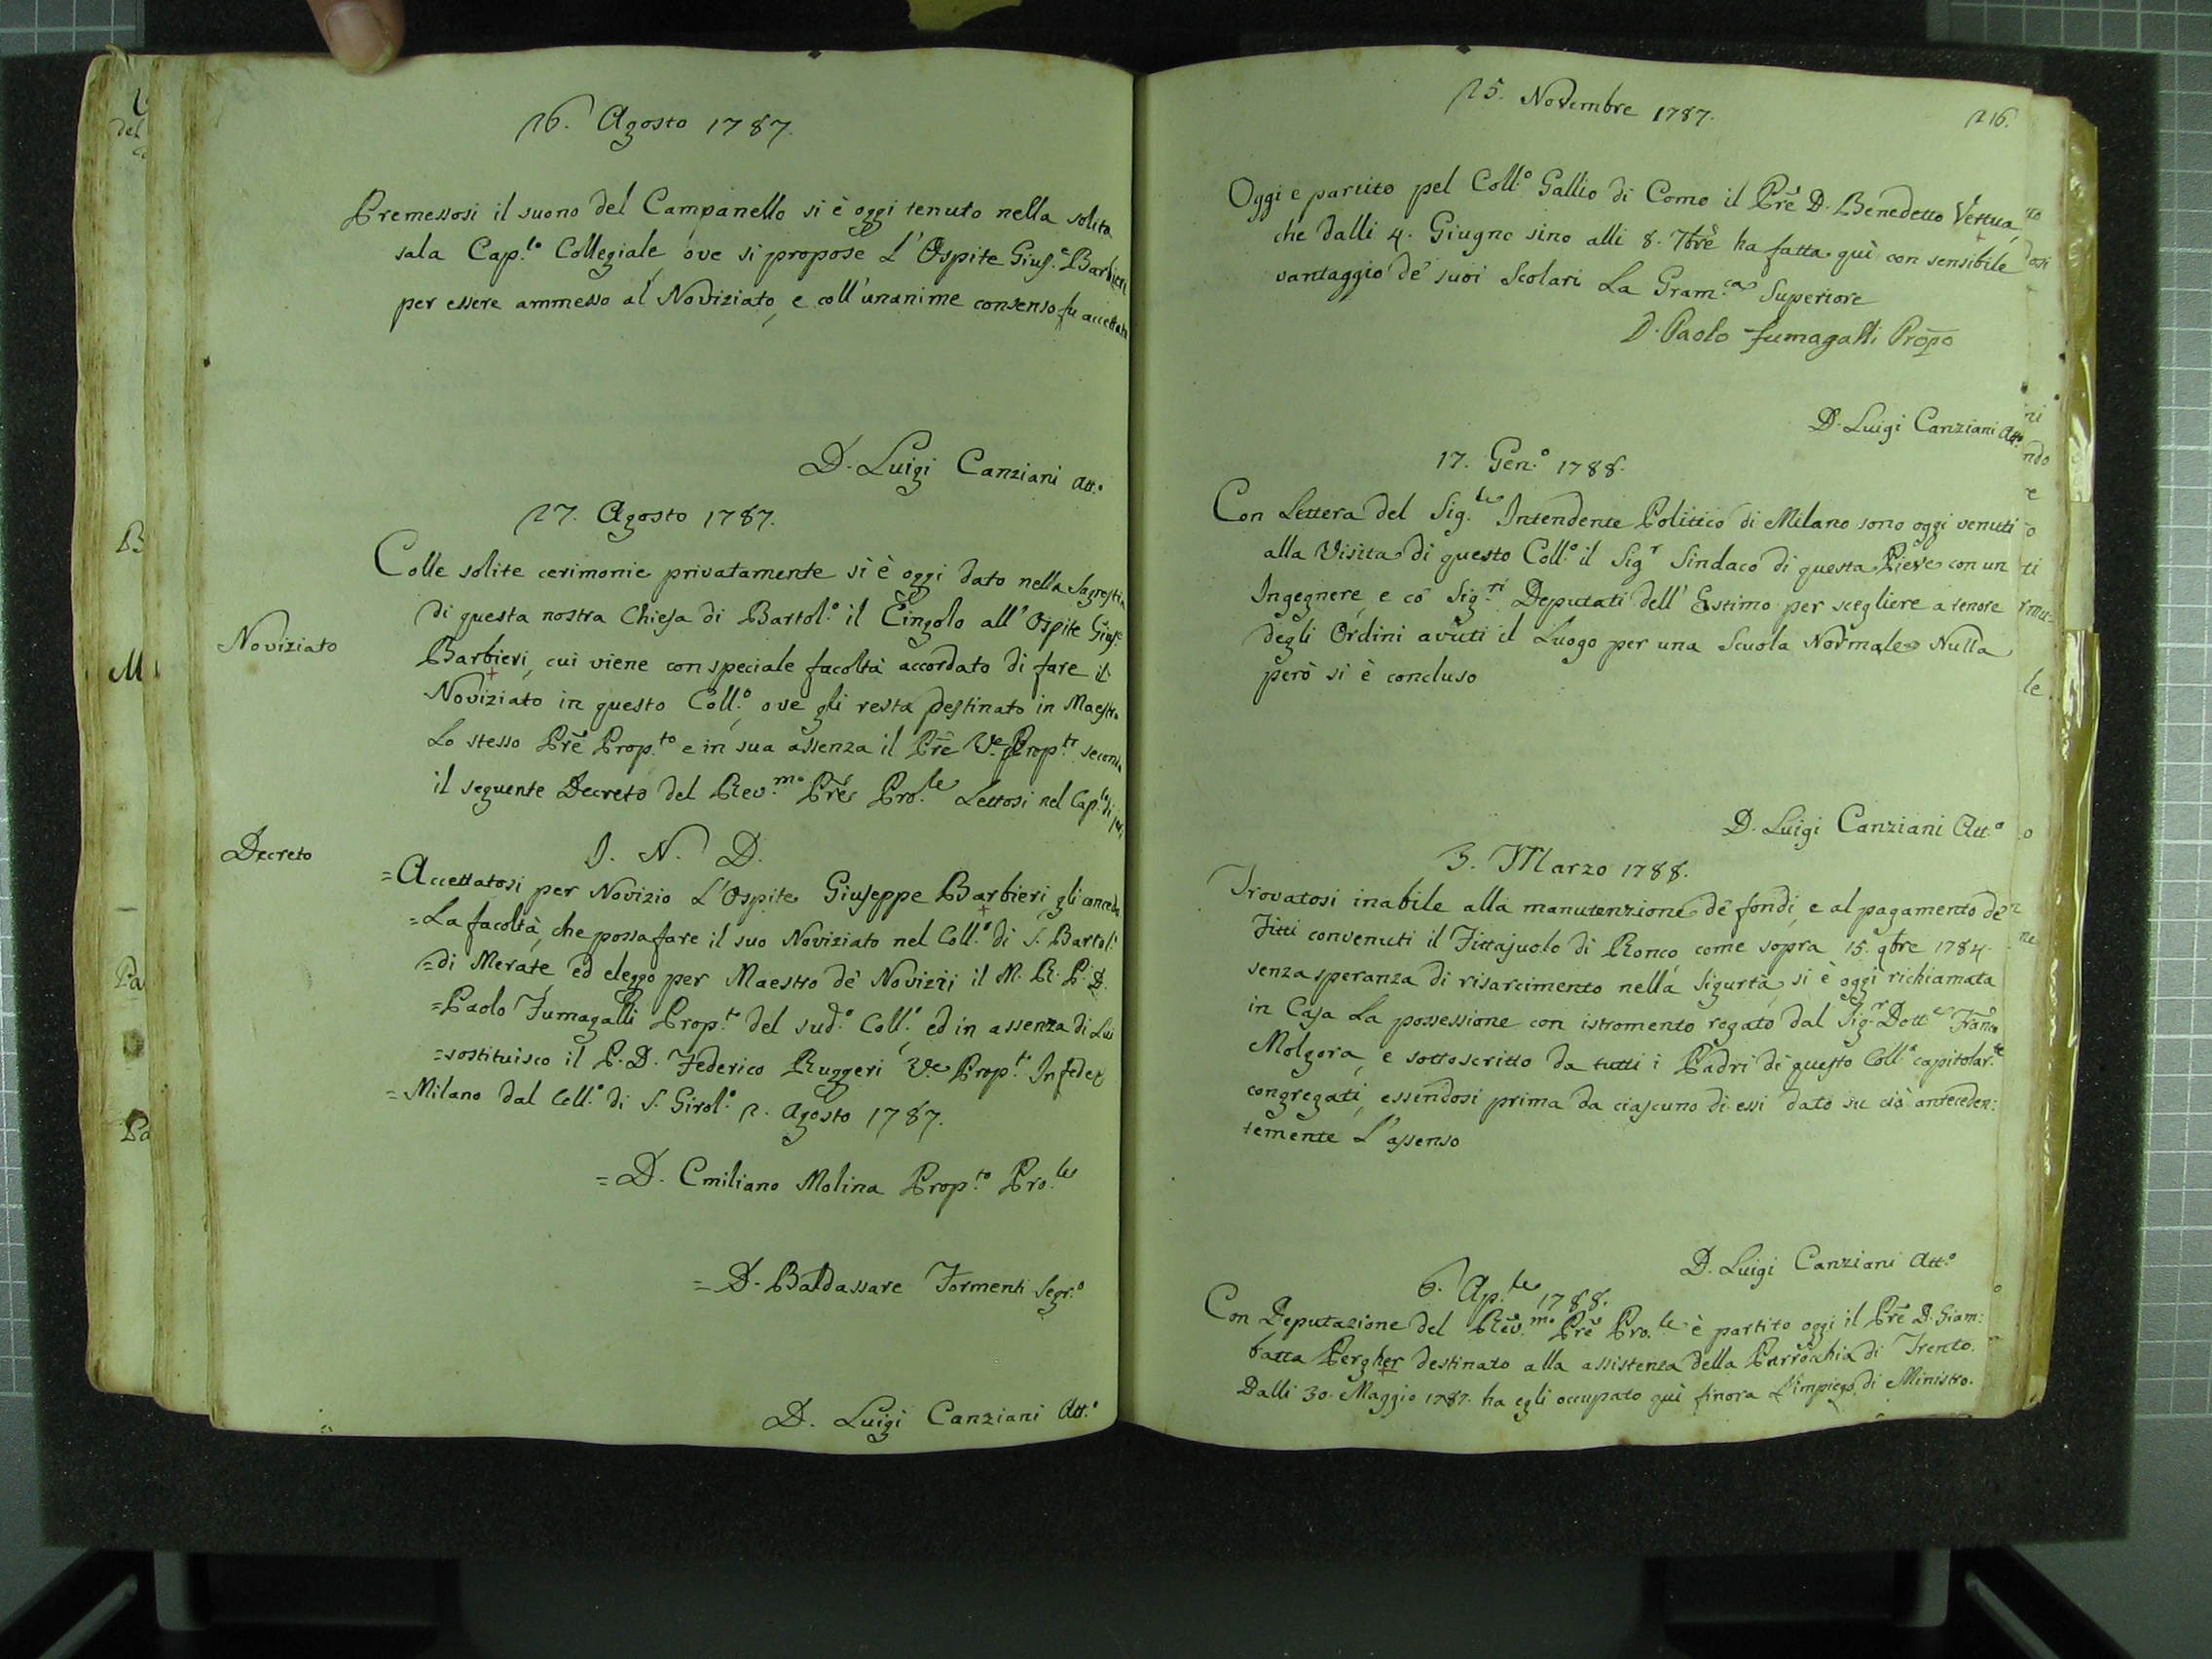 26. Agosto 1787.
Premessosi il suono del Campanello si è oggi tenuto nella solita
sala Cap.lo Collegiale, ove si propose L'Ospite Gius.e Barbieri
per essere ammesso al Noviziato, e coll'unanime consenso fu accettato
D. Luigi Canziani Att.o
27. Agosto 1787.
Colle solite cerimonie privatamente si è oggi dato nella Sagrestia
di questa nostra Chiesa di Bartol.o il Cingolo all'Ospite Gius.e
Noviziato
Barbieri, cui viene con speciale facoltà accordato di fare il
Noviziato in questo Coll.o, ove gli resta destinato in Maestro
Lo stesso Prẽ Prop.to e in sua assenza il Prẽ V.e Prop.to secondo
il seguente Decreto del Rev.mo Prẽ Pro.le Lettosi nel Cap.lo di
Decreto
I. N. D.
=Accettatosi per Novizio L'Ospite Giuseppe Barbieri, gli concedo
=La facoltà, che possa fare il suo Noviziato nel Coll.o di S. Bartol.o
=di Merate, ed eleggo per Maestro de' Novizii il M. R. P. D.
=Paolo Fumagalli Prop.to del sud.o Coll.o, ed in assenza di Lui
=sostituisco il P. D. Federico Ruggeri V.e Prop.to In fede
=Milano dal Coll.o di S. Girol.o 2. Agosto 1787.
=D. Emiliano Molina Prop.to Pro.le
=D. Baldassare Formenti Segr.o
D. Luigi Canziani Att.o
25. Novembre 1787.
216.
Oggi è partito pel Coll.o Gallio di Como il Prẽ D. Benedetto Vertua,
che dalli 4. Giugno sino alli 8. 7brẽ ha fatta quì con sensibile
vantaggio de' suoi Scolari La Gram.ca Superiore
D. Paolo Fumagalli Propo
D. Luigi Canziani Att.o
17. Gen.o 1788.
Con Lettera del Sig.le Intendente Politico di Milano sono oggi venuti
alla Visita di questo Coll.o il Sig.r Sindaco di questa Pieve con un
Ingegnere, e co' Sig.ri Deputati dell'Estimo per scegliere a tenore
degli Ordini avuti il Luogo per una Scuola Normale. Nulla
però si è concluso
D. Luigi Canziani Att.o
3. Marzo 1788.
Trovatosi inabile alla manutenzione de' fondi, e al pagamento de'
Fitti convenuti il Fittajuolo di Ronco come sopra 15. 9bre 1784.
senza speranza di risarcimento nella Sigurtà, si è oggi richiamata
in Casa La possessione con istromento rogato dal Sig.r Dott.e Franc.o
Molgora, e sottoscritto da tutti i Padri di questo Coll.o capitolar.te
congregati, essendosi prima da ciascuno di essi dato su ciò anteceden:
temente L'assenso
D. Luigi Canziani Att.o
6. Ap.le 1788.
Con Deputazione del Rev.mo Prẽ Pro.le è partito oggi il Prẽ D. Giam:
batta Pergher destinato alla assistenza della Parrochia di Trento.
Dalli 30. Maggio 1787. ha egli occupato quì finora L'impiego di Ministro.